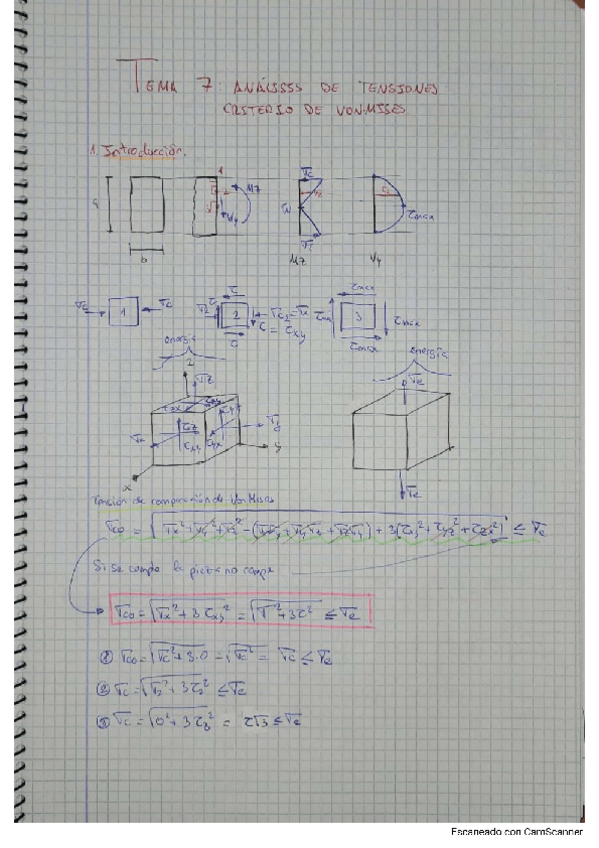 TEMA 7: ANÁLISIS DE TENSIONES
CRITERIO DE VON MISES
1. Introducción.
a
b
1
2
Mz
Vy
σc
σt
Mz
τmax
Vy
σc
1
σc
τ
σ2
2
τ
τ = τxy
τmax
τmax
3
τmax
τmax
energía
energía
z
σz
σx
σy
y
x
σe
σe
Tensión de comparación de Von Mises
σco = √(σx² + σy² + σz² − (σxσy + σyσz + σzσx) + 3(τxy² + τyz² + τzx²)) ≤ σe
Si se cumple la pieza no rompe
σco = √(σx² + 3τxy²) = √(σ² + 3τ²) ≤ σe
① σco = √(σc² + 3·0) = √(σc²) = σc ≤ σe
② σc = √(σ2² + 3τ2²) ≤ σe
③ σc = √(0² + 3τ3²) = τ√3 ≤ σe
Escaneado con CamScanner